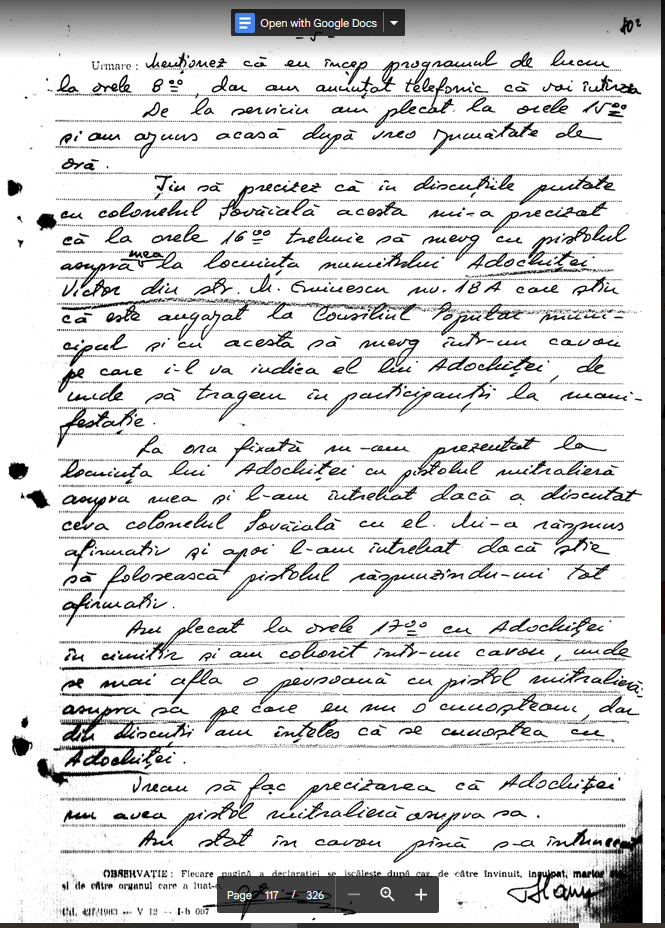 Open with Google Docs
- 5 -
Urmare: Menționez că eu încep programul de lucru
la orele 8⁰⁰, dar am anunțat telefonic că voi întîrzia
De la serviciu am plecat la orele 15⁰⁰
și am ajuns acasă după vreo jumătate de
oră.
Țin să precizez că în discuțiile purtate
cu colonelul Sovăială acesta mi-a precizat
că la orele 16⁰⁰ trebuie să merg cu pistolul
asupra mea la locuința numitului Adochiței
Victor din str. M. Eminescu nr. 18A care știu
că este angajat la Consiliul Popular muni-
cipal și cu acesta să merg într-un cavou
pe care i-l va indica el lui Adochiței, de
unde să tragem în participanții la mani-
festație.
La ora fixată m-am prezentat la
locuința lui Adochiței cu pistolul mitralieră
asupra mea și l-am întrebat dacă a discutat
ceva colonelul Sovăială cu el. Mi-a răspuns
afirmativ și apoi l-am întrebat dacă știe
să folosească pistolul răspunzîndu-mi tot
afirmativ.
Am plecat la orele 17⁰⁰ cu Adochiței
în cimitir și am coborît într-un cavou, unde
se mai afla o persoană cu pistol mitralieră
asupra sa pe care eu nu o cunoșteam, dar
din discuții am înțeles că se cunoștea cu
Adochiței.
Vreau să fac precizarea că Adochiței
nu avea pistol mitralieră asupra sa.
Am stat în cavou pînă s-a întunecat
OBSERVAȚIE: Fiecare pagină a declarației se iscălește după caz, de către învinuit, inculpat, martor
și de către organul care a luat-o.
Page 117 / 326
Cd. 437/1983 — V 12 — I-b 007